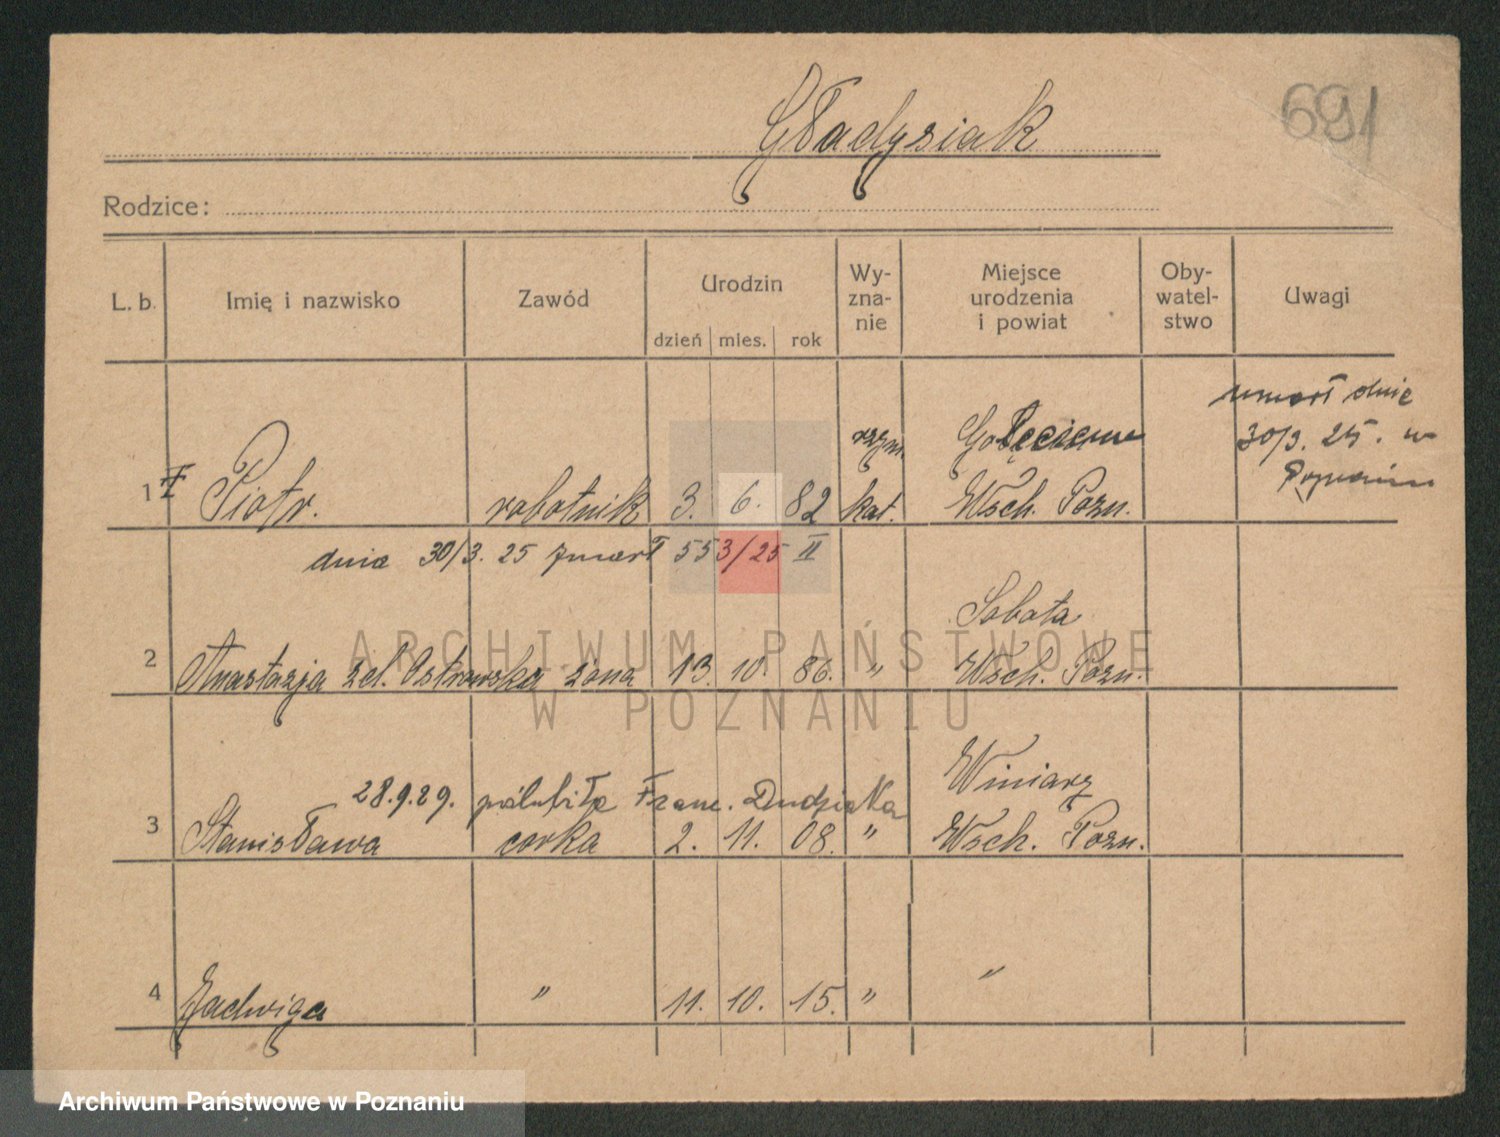 691
Gładysiak
Rodzice:
L. b. Imię i nazwisko Zawód Urodzin dzień mies. rok Wy-zna-nie Miejsce urodzenia i powiat Oby-watel-stwo Uwagi
umarł dnia
30/3. 25. w
Poznaniu
rzym. Golęcienie
1 † Piotr. robotnik 3. 6. 82 kat. Wsch. Pozn.
dnia 30/3. 25 zmarł 553/25 II
Sobota
2 Anastazja zd. Ostrowska żona 13. 10. 86. " Wsch. Pozn.
ARCHIWUM PAŃSTWOWE
W POZNANIU
Winiary
28.9.29. poślubiła Franc. Dudziaka
3 Stanisława corka 2. 11. 08. " Wsch. Pozn.
4 Jadwiga " 11. 10. 15. " "
Archiwum Państwowe w Poznaniu